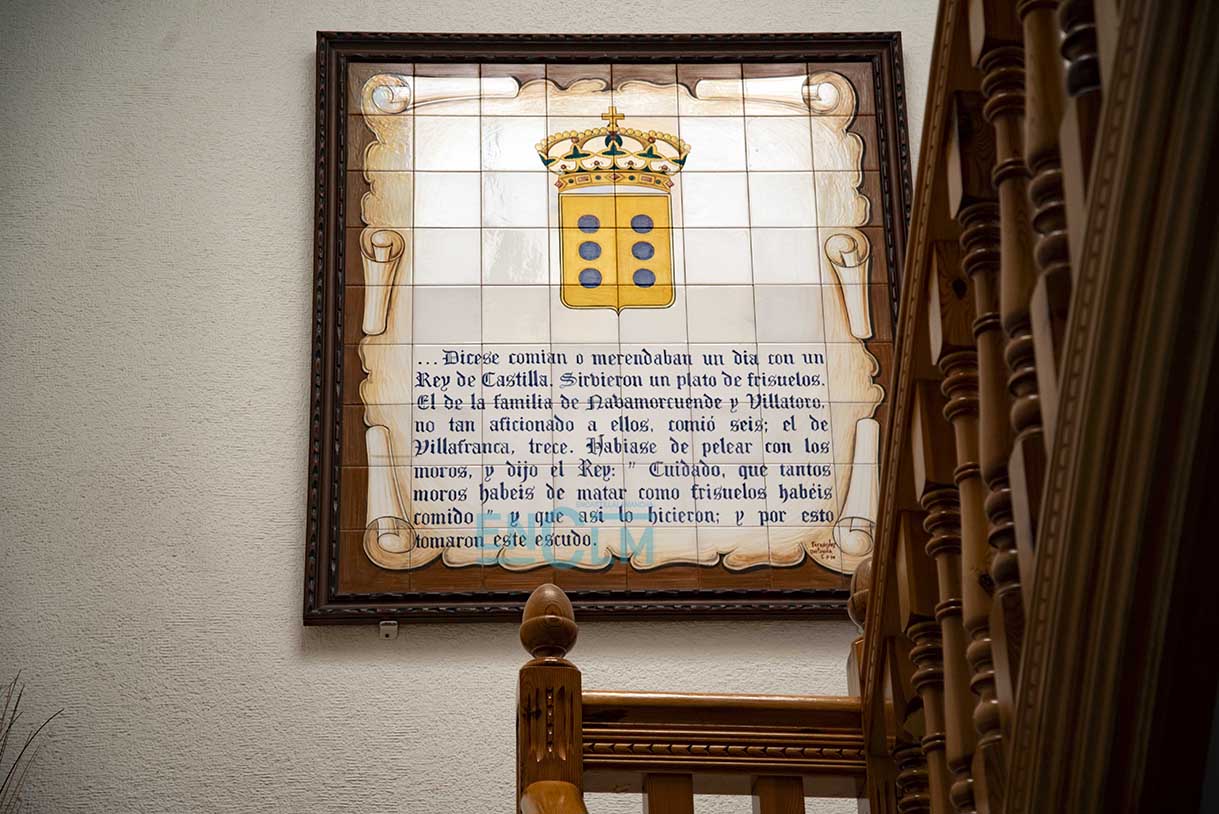 ...Dicese comian o merendaban un dia con un
Rey de Castilla. Sirvieron un plato de frisuelos.
El de la familia de Navamorcuende y Villatoro,
no tan aficionado a ellos, comió seis; el de
Villafranca, trece. Habiase de pelear con los
moros, y dijo el Rey: " Cuidado, que tantos
moros habeis de matar como frisuelos habéis
comido " y que asi lo hicieron; y por esto
tomaron este escudo.
ENCLM